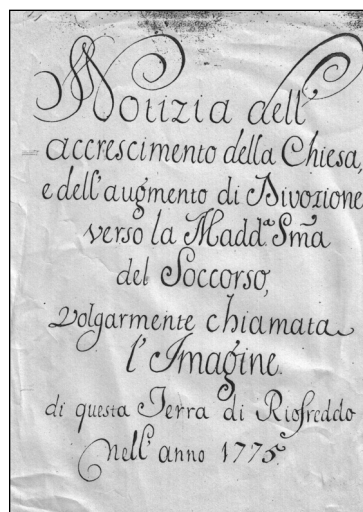 Notizia dell'
accrescimento della Chiesa,
e dell'augmento di Divozione
verso la Madd.ª Smã
del Soccorso,
volgarmente chiamata
l'Imagine.
di questa Terra di Riofreddo
nell' anno 1775.